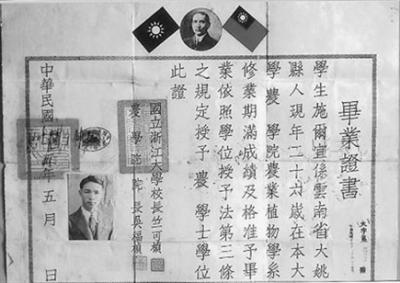 畢業證書
學生施爾宜係雲南省大姚
縣人現年二十六歲在本大
學農學院農業植物學系
修業期滿成績及格准予畢
業依照學位授予法第三條
之規定授予農學士學位
此證
國立浙江大學校長竺可楨
農學院院長吳福楨
中華民國年五月日
大字第